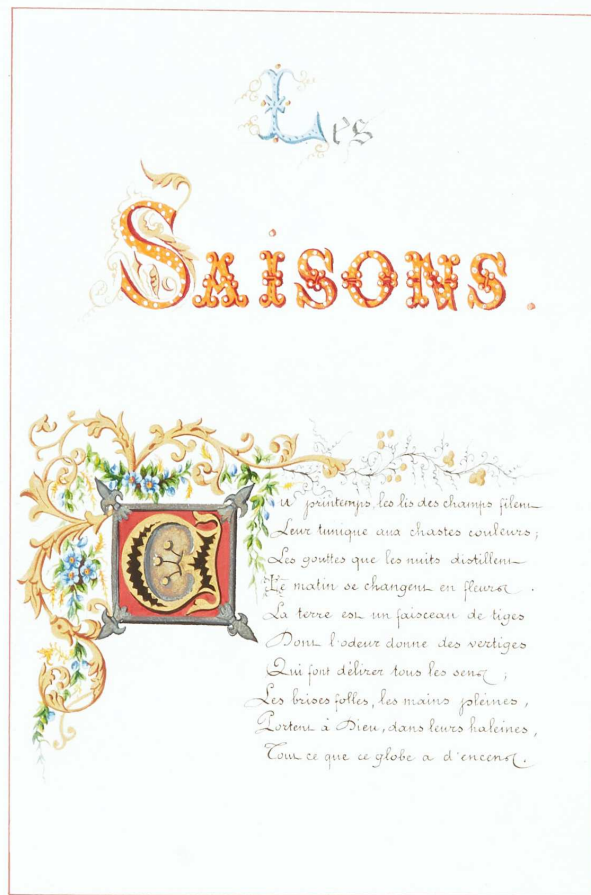 Les
SAISONS.
Au printemps, les lis des champs filent
Leur tunique aux chastes couleurs;
Les gouttes que les nuits distillent
Le matin se changent en fleurs.
La terre est un faisceau de tiges
Dont l'odeur donne des vertiges
Qui font délirer tous les sens;
Les brises folles, les mains pleines,
Portent à Dieu, dans leurs haleines,
Tout ce que ce globe a d'encens.